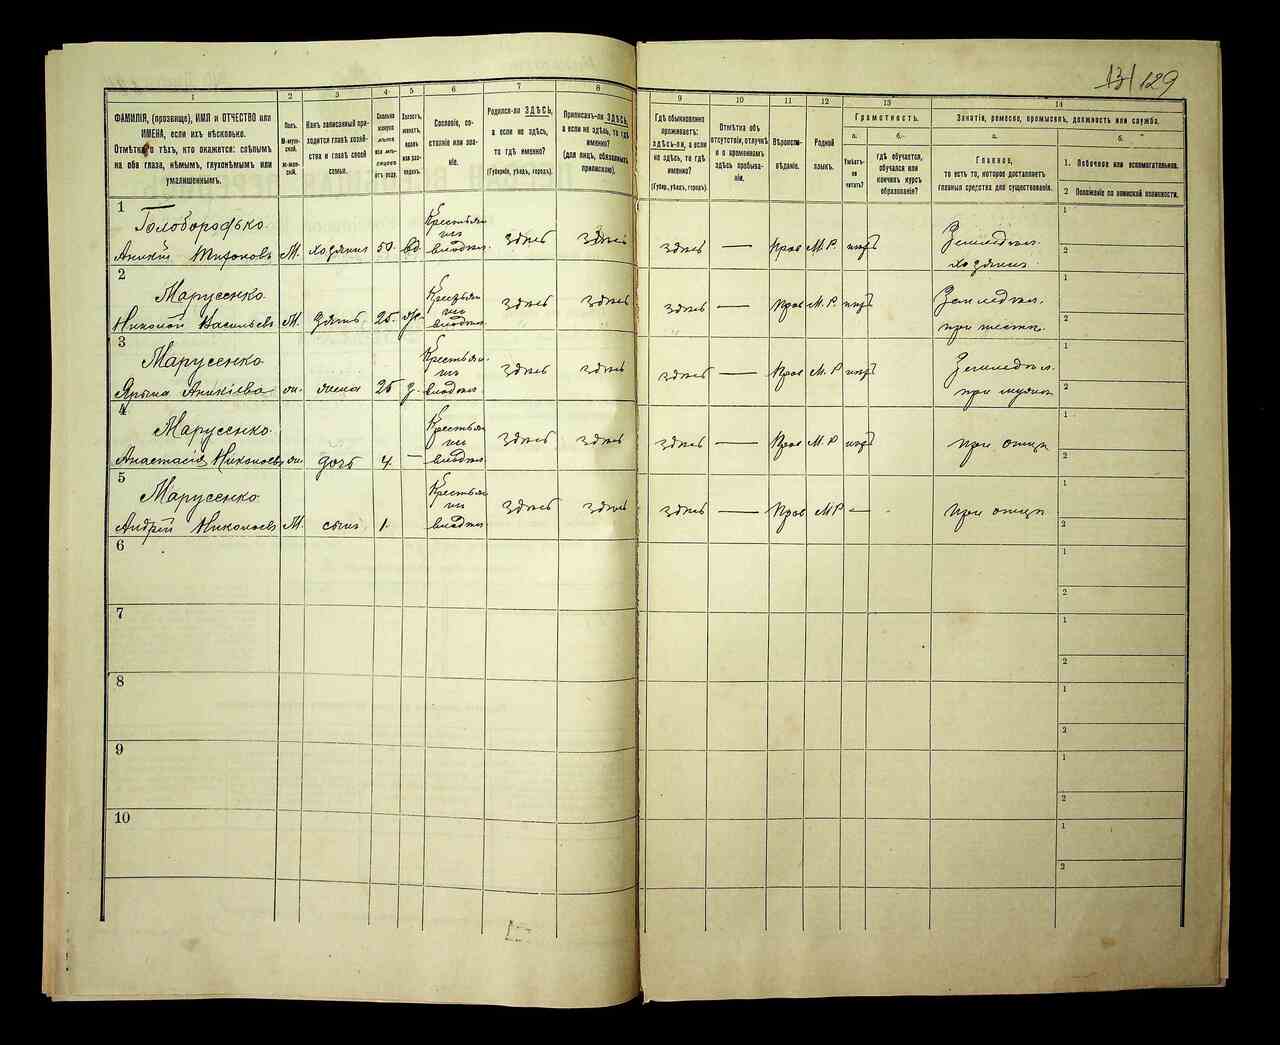 13 / 129
1
2
3
4
5
6
7
8
9
10
11
12
13
14
ФАМИЛІЯ, (прозвище), ИМЯ и ОТЧЕСТВО или
ИМЕНА, если ихъ нѣсколько.
Отмѣтка о тѣхъ, кто окажется: слѣпымъ
на оба глаза, нѣмымъ, глухонѣмымъ или
умалишеннымъ.
Полъ.
М-муж-
ской.
ж-жен-
скій.
Какъ записанный при-
ходится главѣ хозяй-
ства и главѣ своей
семьи.
Сколько
минуло
лѣтъ
или мѣ-
сяцевъ
отъ роду.
Холостъ,
женатъ,
вдовъ
или раз-
веденъ.
Сословіе, со-
стояніе или зва-
ніе.
Родился-ли ЗДѢСЬ,
а если не здѣсь,
то гдѣ именно?
(Губернія, уѣздъ, городъ).
Приписанъ-ли ЗДѢСЬ,
а если не здѣсь, то гдѣ
именно?
(для лицъ, обязанныхъ
припискою).
Гдѣ обыкновенно
проживаетъ:
ЗДѢСЬ-ли, а если
не здѣсь, то гдѣ
именно?
(Губер., уѣздъ, городъ).
Отмѣтка объ
отсутствіи, отлучкѣ
и о временномъ
здѣсь пребыва-
ніи.
Вѣроиспо-
вѣданіе.
Родной
языкъ.
Грамотность.
а.
Умѣетъ-
ли
читать?
б.
гдѣ обучается,
обучался или
кончилъ курсъ
образованія?
Занятіе, ремесло, промыселъ, должность или служба.
а.
Главное,
то есть то, которое доставляетъ
главныя средства для существованія.
б.
1. Побочное или вспомогательное.
2 Положеніе по воинской повинности.
1
Голобородько
Аникій Тихоновъ М. хозяинъ 50. вд. Крестьян
изъ
владѣл. здѣсь здѣсь здѣсь — Прав М.Р. нѣтъ Земледѣл.
хозяинъ
1
2
2
Марусенко
Николай Васильевъ М. зять. 25. Крестьян
изъ
владѣл. здѣсь здѣсь здѣсь — Прав М.Р. нѣтъ Земледѣл.
при тестѣ.
1
2
3
Марусенко
Аникіева жена 25 Крестьян.
изъ
владѣл. здѣсь здѣсь здѣсь — Прав М.Р нѣтъ Земледѣл.
при мужѣ
1
2
4
Марусенко
Анастасія Николаев. дочь 4. — Крестьян
изъ
владѣл. здѣсь здѣсь здѣсь — Прав М.Р. нѣтъ при отцѣ
1
2
5
Марусенко
Андрій Николаевъ М. сынъ 1. Крестьян
изъ
владѣл. здѣсь здѣсь здѣсь — Прав М.Р — при отцѣ
1
2
6
1
2
7
1
2
8
1
2
9
1
2
10
1
2